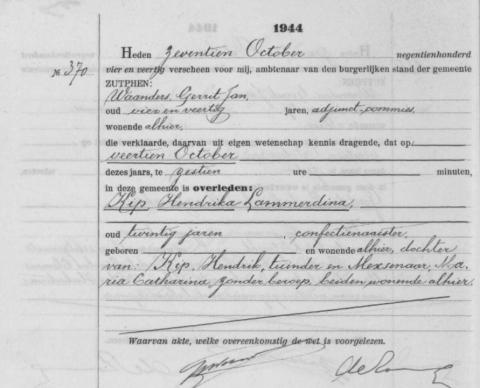 1944
Heden zeventien October negentienhonderd
№ 370 vier en veertig verscheen voor mij, ambtenaar van den burgerlijken stand der gemeente
ZUTPHEN:
Waanders, Gerrit Jan,
oud vier en veertig jaren, adjunct-commies,
wonende alhier,
die verklaarde, daarvan uit eigen wetenschap kennis dragende, dat op
veertien October
dezes jaars, te zestien ure minuten,
in deze gemeente is overleden:
Kip, Hendrika Lammerdina,
oud twintig jaren, confectienaaister,
geboren en wonende alhier, dochter
van: Kip, Hendrik, tuinder en Mexsenaar, Ma-
ria Catharina, zonder beroep, beiden wonende alhier.
Waarvan akte, welke overeenkomstig de wet is voorgelezen.